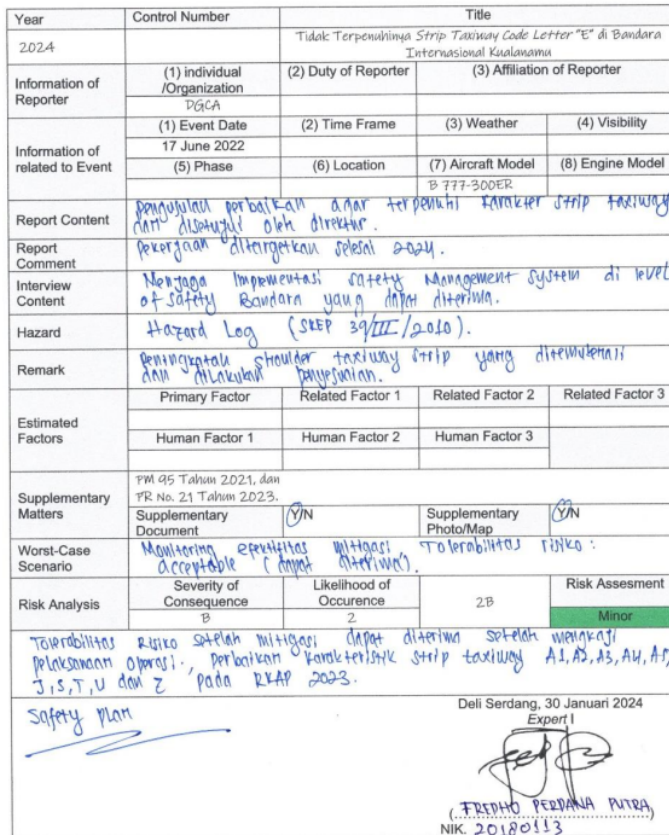 Year
Control Number
Title
2024
Tidak Terpenuhinya Strip Taxiway Code Letter "E" di Bandara
Internasional Kualanamu
Information of
Reporter
(1) individual
/Organization
(2) Duty of Reporter
(3) Affiliation of Reporter
DGCA
Information of
related to Event
(1) Event Date
(2) Time Frame
(3) Weather
(4) Visibility
17 June 2022
(5) Phase
(6) Location
(7) Aircraft Model
(8) Engine Model
B 777-300ER
Report Content
Pengusulan perbaikan agar terpenuhi karakter strip taxiway
dan disetujui oleh direktur.
Report
Comment
Pekerjaan ditargetkan selesai 2024.
Interview
Content
Menjaga Implementasi safety Management system di level
of safety Bandara yang dapat diterima.
Hazard
Hazard Log (SKEP 39/III/2010).
Remark
Peningkatan shoulder taxiway strip yang
dan dilakukan penyesuaian.
Estimated
Factors
Primary Factor
Related Factor 1
Related Factor 2
Related Factor 3
Human Factor 1
Human Factor 2
Human Factor 3
Supplementary
Matters
PM 95 Tahun 2021, dan
PR No. 21 Tahun 2023.
Supplementary
Document
Y/N
Supplementary
Photo/Map
Y/N
Worst-Case
Scenario
Monitoring efektifitas mitigasi Tolerabilitas risiko :
acceptable (dapat diterima).
Risk Analysis
Severity of
Consequence
Likelihood of
Occurence
2B
Risk Assesment
B
2
Minor
Tolerabilitas Risiko setelah mitigasi dapat diterima setelah mengkaji
pelaksanaan operasi., perbaikan karakteristik strip taxiway A1, A2, A3, A4, A5,
J, S, T, U dan Z pada RKAP 2023.
Safety Plan
Deli Serdang, 30 Januari 2024
Expert I
( FREDHO PERDANA PUTRA )
NIK. 20180113